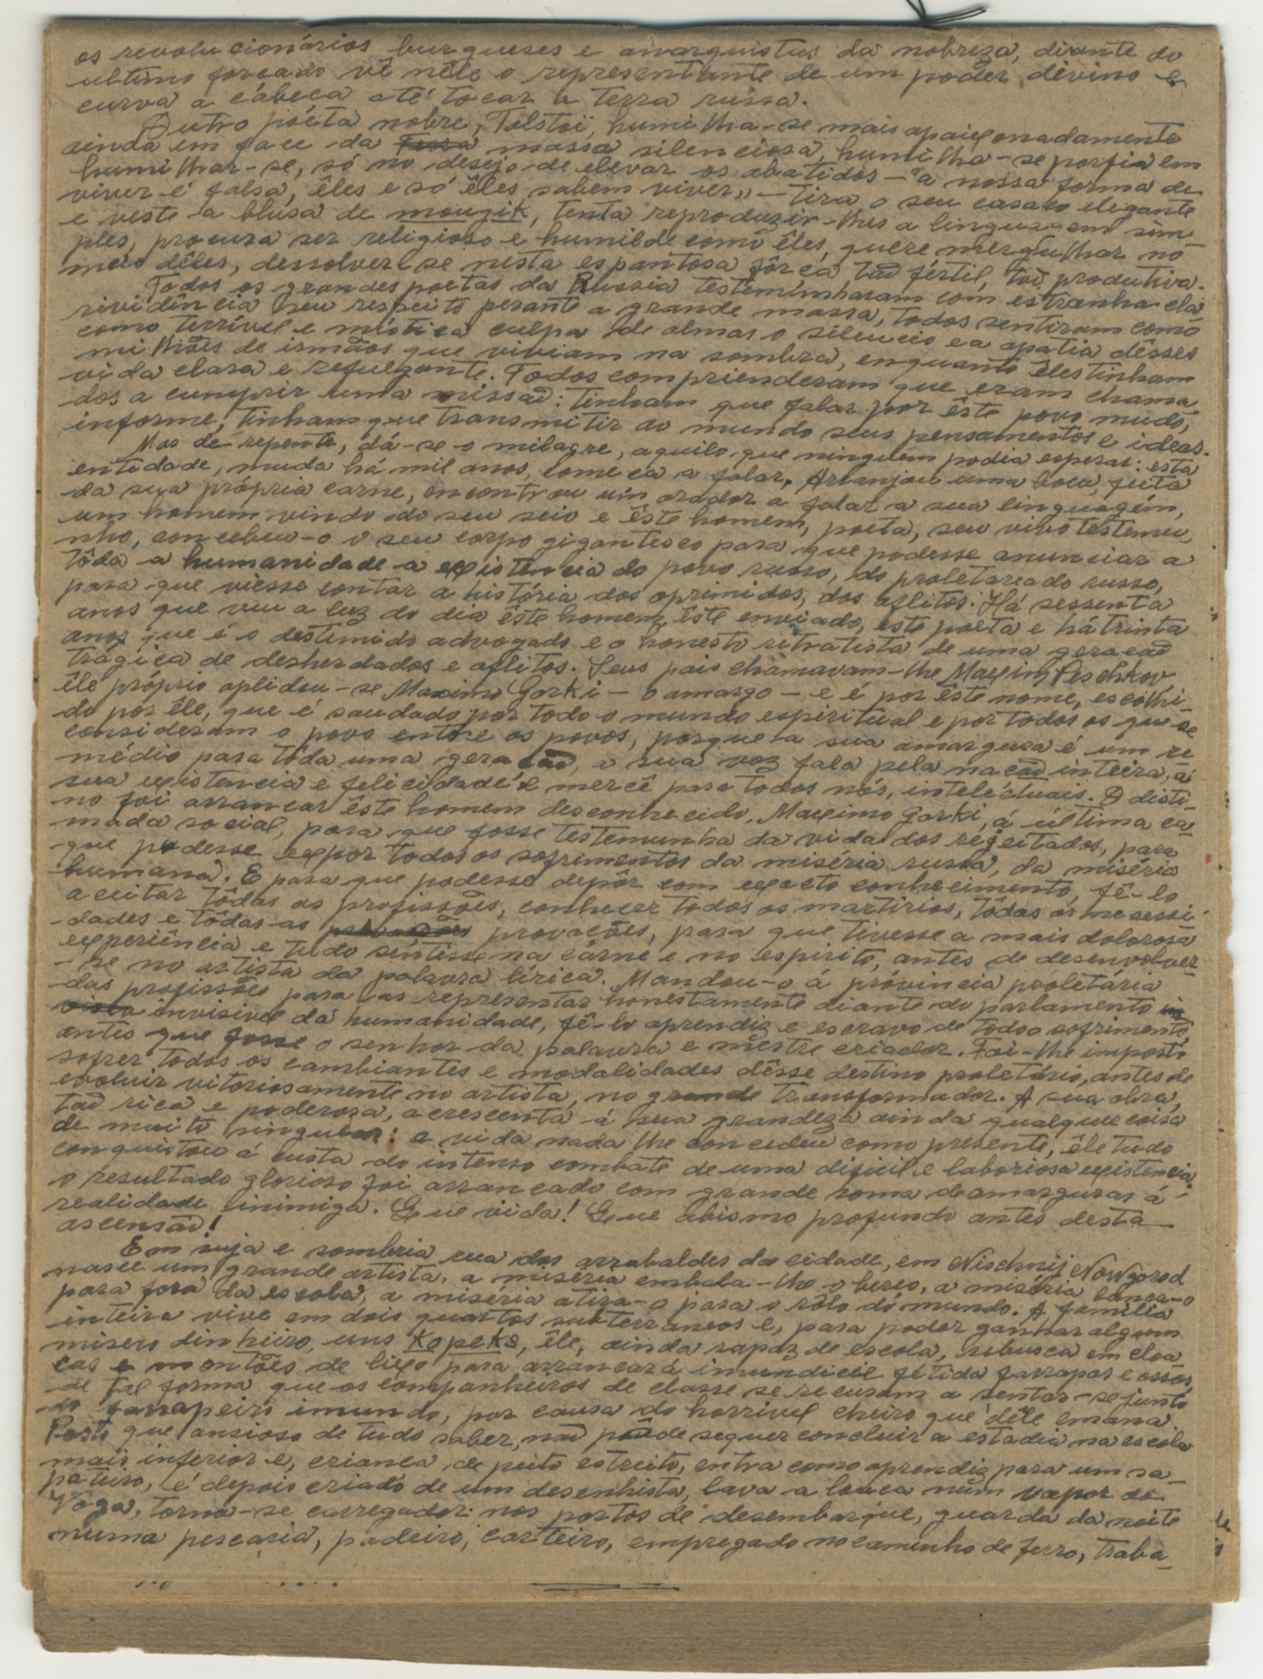 os revolucionários burgueses e anarquistas da nobreza, diante do
ultimo forçado vê nêle o representante de um poder divino e
curva a cabeça até tocar a terra russa.
Outro poéta nobre, Tolstoï, humilha-se mais apaixonadamente
ainda em face da massa silenciosa, humilha-se porfia em
humilhar-se, só no desejo de elevar os abatidos — "a nossa forma de
viver é falsa, êles e só êles sabem viver" — tira o seu casaco elegante
e veste a blusa de moujik, tenta reproduzir-lhes a linguagem sim-
ples, procura ser religioso e humilde como êles, quere mergulhar no
meio dêles, dessolver-se nesta espantosa fôrça tão fértil, tão produtiva.
Todos os grandes poetas da Russia testeminharam com estranha cla-
rividência seu respeito perante a grande massa, todos sentiram como
como terrivel e mística culpa de almas o silencio e a apatia dêsses
milhões de irmãos que viviam na sombra, enquanto êles tinham
vida clara e refulgante. Todos comprienderam que eram chama-
dos a cumprir uma missão: tinham que falar por êste povo mudo,
informe; tinham que transmitir ao mundo seus pensamentos e ideas.
Mas de repente, dá-se o milagre, aquilo que ninguem podia esperar: esta
entidade, muda há mil anos, começa a falar. Arranjou uma boca feita
da sua própria carne, encontrou um orador a falar a sua linguagém,
um homem vindo do seu seio e êste homem, poeta, seu vivo testemu-
nho, concebeu-o o seu corpo gigantesco para que podesse anunciar a
tôda a humanidade a existência do povo russo, do proletareado russo,
para que viesse contar a história dos oprimidos, dos aflitos. Há sessenta
anos que viu a luz do dia êste homem, êste enviado, este poeta e há trinta
anos que é o destemido advogado e o honesto retratista de uma geração
trágica de desherdados e aflitos. Seus pais chamavam-lhe Maxim Peschkov
êle próprio aplidou-se Maximo Gorki — o amargo — e é por êste nome, escolhi-
do por êle, que é saudado por todo o mundo espiritual e por todos os que se
consideram o povo entre os povos, porque a sua amargura é um re-
médio para tôda uma geração, a sua voz fala pela nação inteira, a
sua existencia e felicidade é mercê para todos nós, inteléctuais. O desti-
no foi arrancar êste homem desconhecido, Maximo Gorki, á ultima ca-
mada social, para que fosse testemunha da vida dos rejeitados, para
que podesse expor todos os sofrimentos da miséria russa, da miséria
humana. E para que podesse depôr com exacto conhecimento, fê-lo
aceitar tôdas as profissões, conhecer todos os martirios, tôdas as necessi-
dades e tôdas as provações, para que tivesse a mais dolorosa
experiência e tudo sentisse na carne e no espirito, antes de desenvolver-
-se no artista da palavra lírica. Mandou-o á próvincia proletária
das profissões para as representar honestamente diante do parlamento in
invisivel da humanidade, fê-lo aprendiz e escravo de todo o sofrimento
antes que fosse o senhor da palavra e mestre criador. Foi-lhe imposto
sofrer todos os cambiantes e modalidades dêsse destino proletário, antes de
evoluir vitoriosamente no artista, no grande transformador. A sua obra,
tão rica e poderosa, acrescenta á sua grandeza ainda qualquer coisa
de muito singular: a vida nada lhe concedeu como presente, êle tudo
conquistou á custa do intenso combate de uma dificil e laboriosa existencia,
o resultado glorioso foi arrancado com grande soma de amarguras á
realidade inimiga. Que vida! Que abismo profundo antes desta
ascensão!
Em suja e sombria rua dos arrabaldes da cidade, em Nischnij Nowgorod
nasce um grande artista, a miseria embala-lhe o berço, a miséria lança-o
para fora da escola, a miséria atira-o para o rôlo do mundo. A família
inteira vive em dois quartos subterraneos e, para poder ganhar algum
misero dinheiro, uns Kopeks, êle, ainda rapaz de escola, rebusca em cloa-
cas e montões de lixo para arrancar á imundicie fétida farrapos e ossos
de tal forma que os companheiros de classe se recusam a sentar-se junto
do farrapeiro imundo, por causa do horrivel cheiro que dêle emana.
Posto que ansioso de tudo saber, não pôude sequer concluir a estadia na escola
mais inferior e, crianca, de peito estreito, entra como aprendiz para um sa-
pateiro, é depois criado de um desenhista, lava a louca num vapor do
Volga, torna-se carregador nos portos de desembarque, guarda da noite
numa pescaria, padeiro, carteiro, empregado no caminho de ferro, traba-